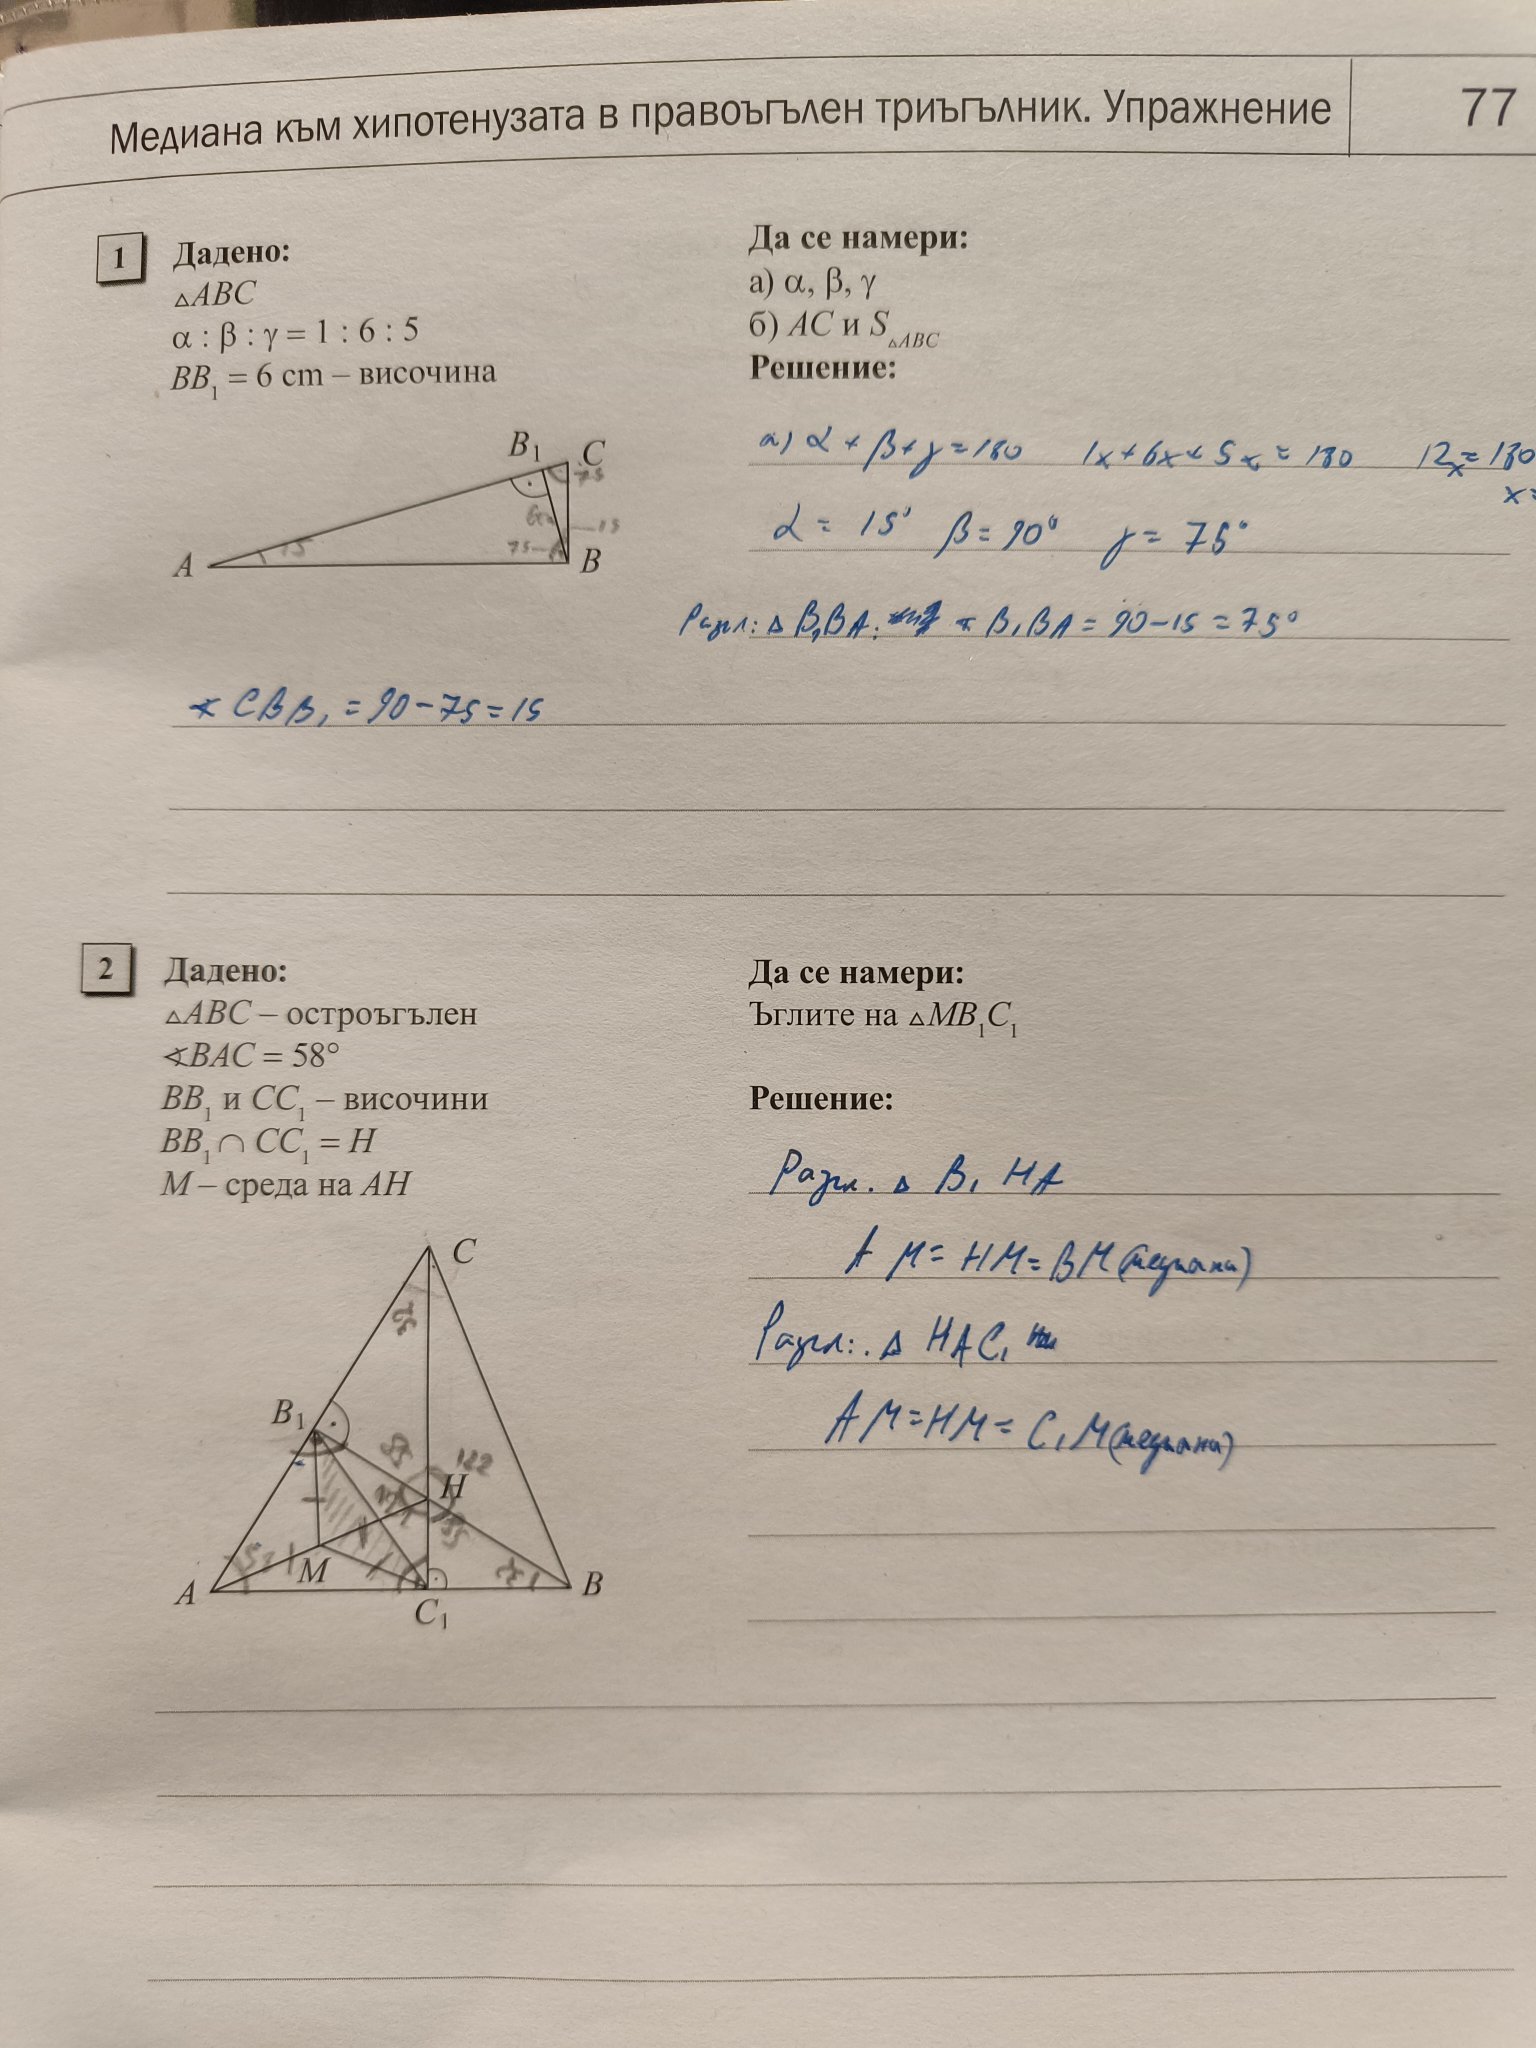 Медиана към хипотенузата в правоъгълен триъгълник. Упражнение
77
1
Дадено:
△ABC
α : β : γ = 1 : 6 : 5
BB₁ = 6 cm – височина
Да се намери:
а) α, β, γ
б) AC и S△ABC
Решение:
B₁ C
75
15
75
15
A
B
а) α + β + γ = 180 1x + 6x + 5x = 180 12x = 180
x =
α = 15° β = 90° γ = 75°
Разгл: △ B₁BA: ∢ B₁BA = 90 – 15 = 75°
∢ CBB₁ = 90 – 75 = 15
2
Дадено:
△ABC – остроъгълен
∢BAC = 58°
BB₁ и CC₁ – височини
BB₁ ∩ CC₁ = H
M – среда на AH
Да се намери:
Ъглите на △MB₁C₁
Решение:
Разгл. △ B₁ HA
AM = HM = BM (медиана)
Разгл: . △ HAC₁
AM = HM = C₁M (медиана)
C
32
B₁
122
H
M
A
B
C₁